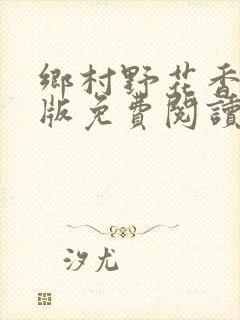 鄉村野花香
版免費閱讀
汐尤